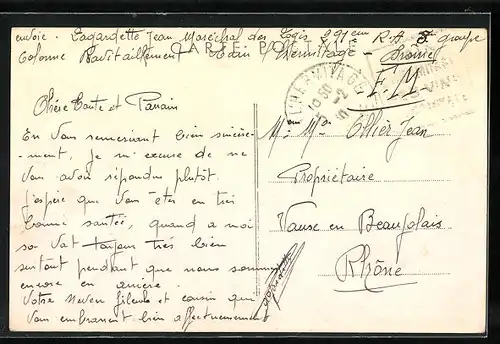 envoie. Lagardette Jean Maréchal des Logis 291em R.A. 5e groupe
CARTE POSTALE
Colonne Ravitaillement Tain l'Hermitage - Drôme
F.M.
Chère Tante et Parrain
En vous remerciant bien sincère-
-ment, je m'excuse de ne
vous avoir répondu plutôt.
J'espère que vous êtes en très
bonne santée, quand a moi
sa vat toujours très bien
surtout pendant que nous sommes
encore en arrière.
Votre neveu filleule et cousin qui
vous embrassent bien affectueusement
Lagardette
TAIN-L'HERMITAGE
M. Mme Ollier Jean
Propriétaire
Vause en Beaujolais
Rhône